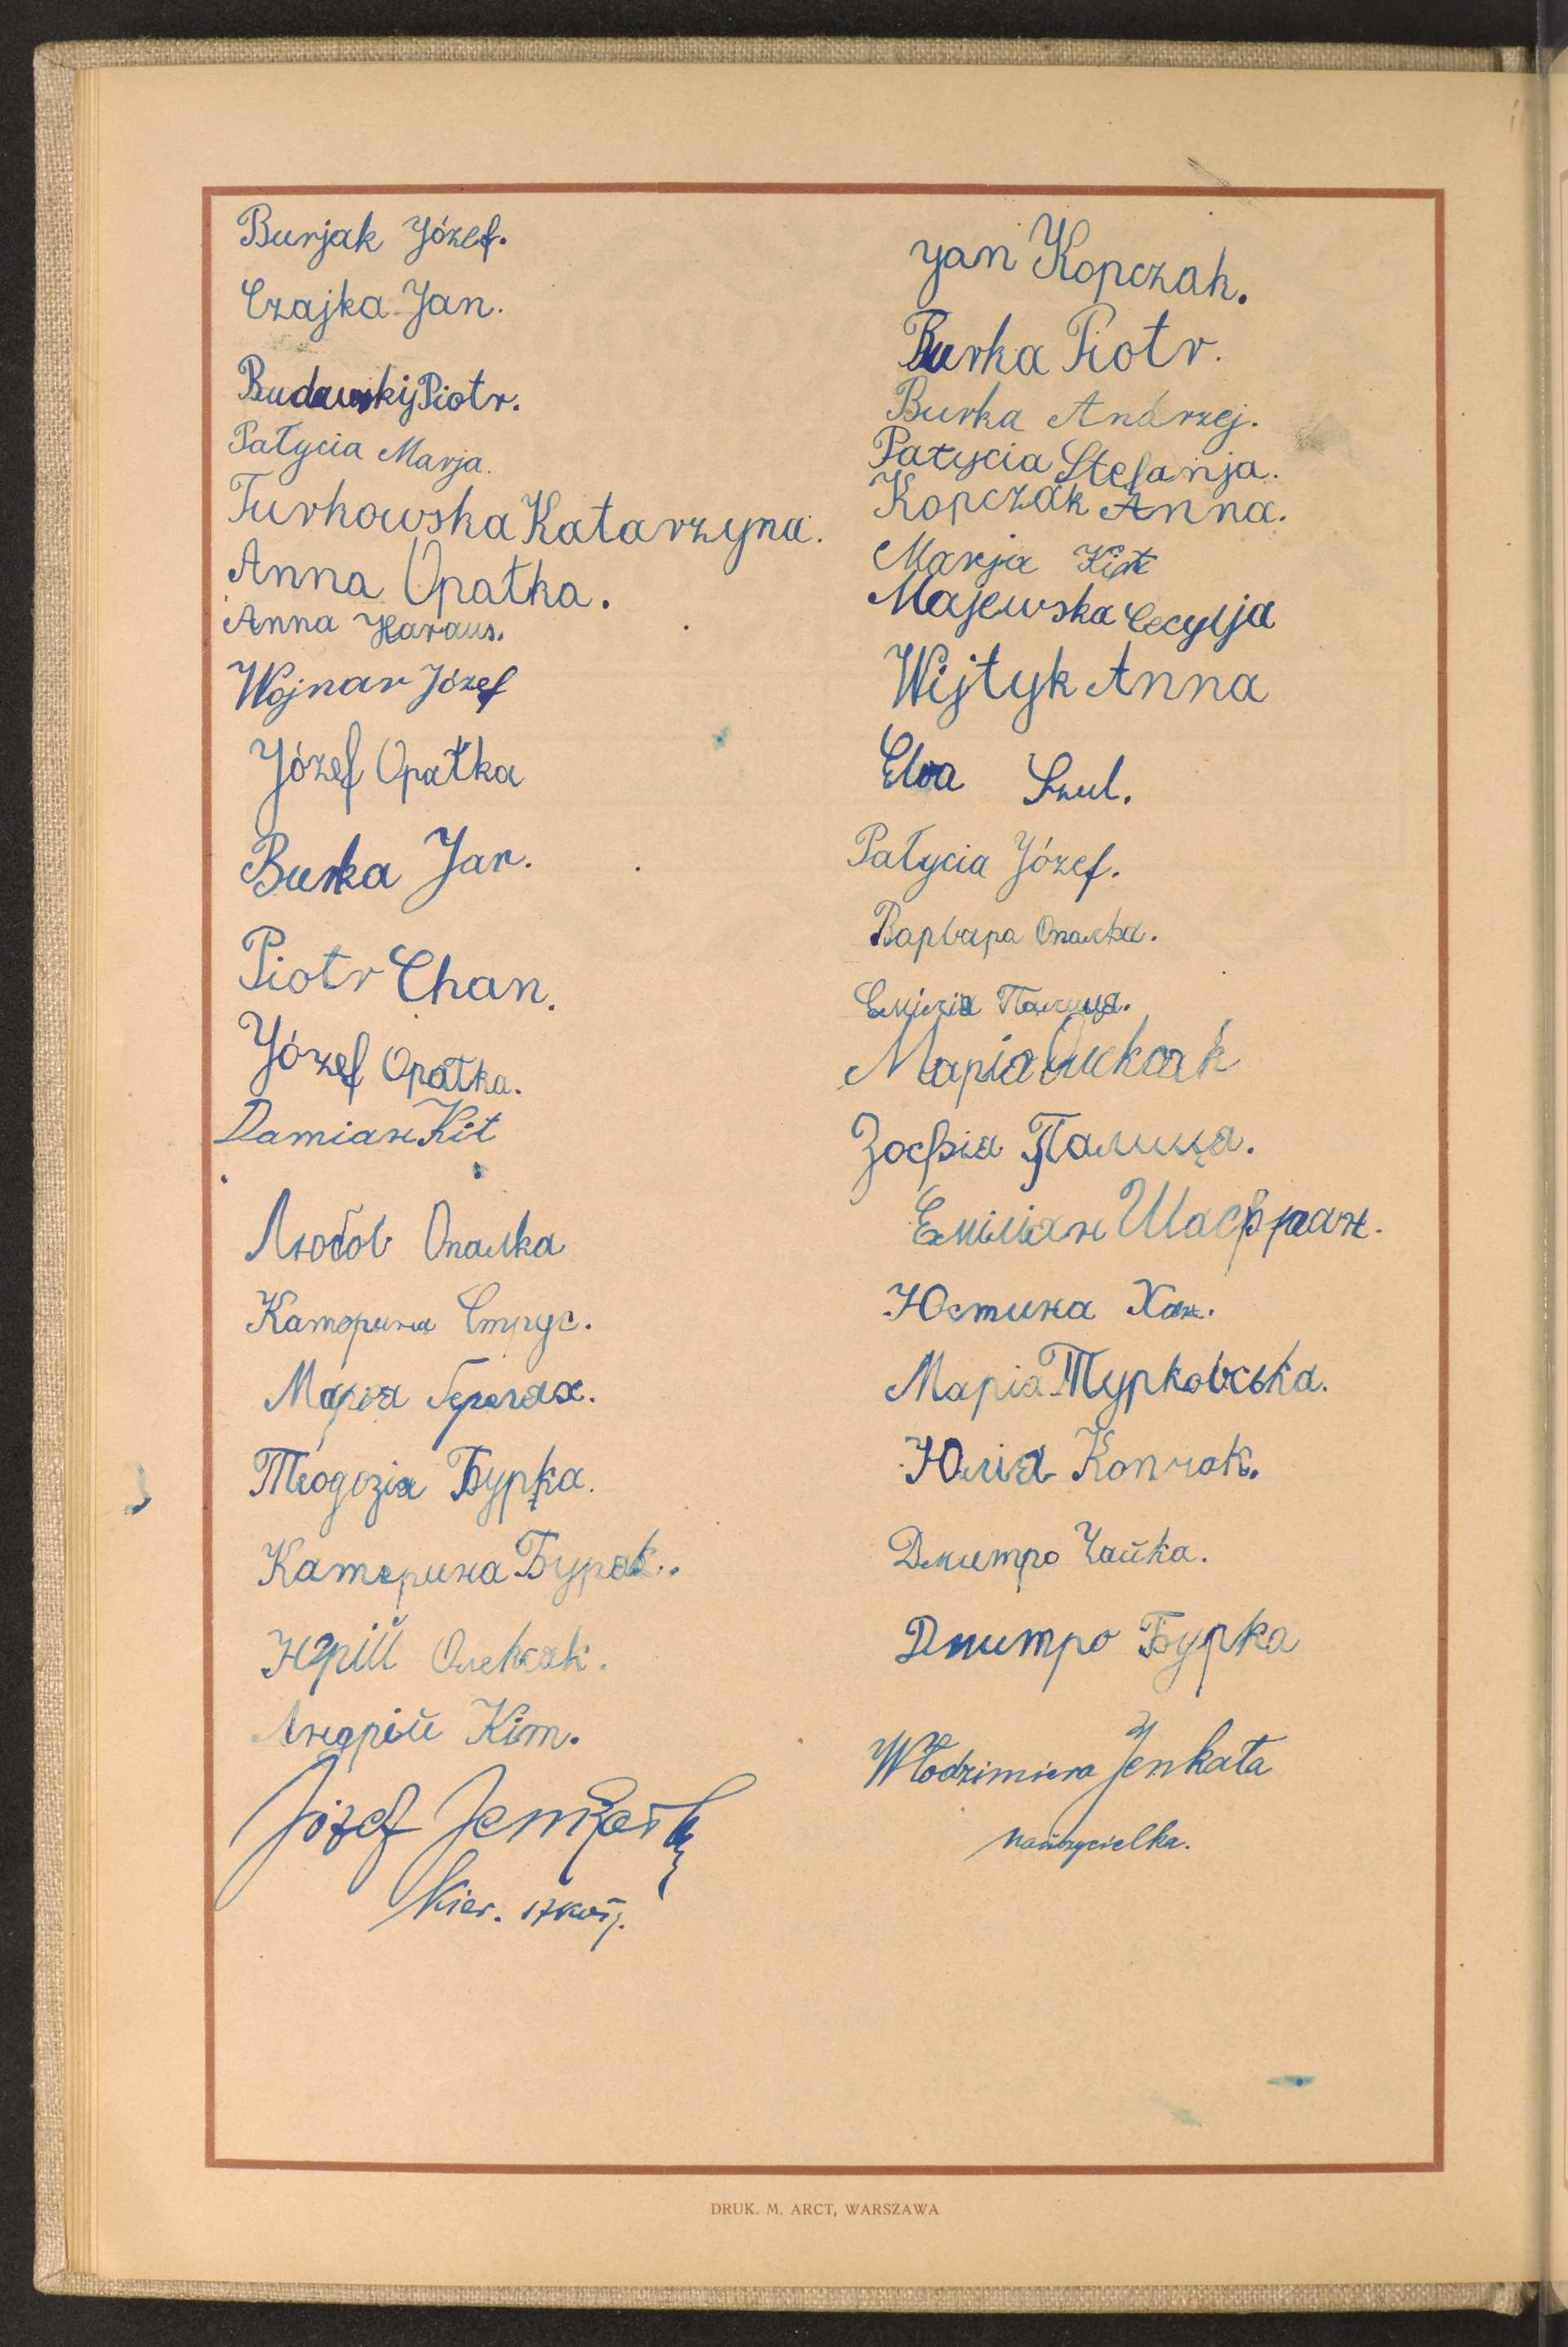 Burjak Józef.
Czajka Jan.
Budawskij Piotr.
Pałycia Marja.
Turkowska Katarzyna.
Anna Opałka.
Anna Haraus.
Wojnar Józef
Józef Opałka
Burka Jan.
Piotr Chan.
Józef Opałka.
Damian Kit
Любов Опалка
Катерина Струс.
Марія
Теодозія Бурка.
Катерина Буряк..
Юрій Олексак.
Андрій Кіт.
Józef Jenkała
kier. szkoły.
Jan Kopczak.
Burka Piotr.
Burka Andrzej.
Pałycia Stefanja.
Kopczak Anna.
Marja Kit
Majewska Cecylja
Wijtyk Anna
Ewa Szul.
Pałycia Józef.
Варвара Опалка.
Емілія Палиця.
Марія Олексак
Зофія Палиця.
Еміліян Шаффран.
Юстина Хан.
Марія Турковська.
Юлія Копчак.
Дмитро Чайка.
Дмитро Бурка
Włodzimiera Jenkała
nauczycielka.
DRUK. M. ARCT, WARSZAWA